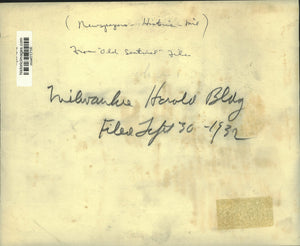 (Newspapers - Historic - Mil)
From "Old Sentinel" Files
Milwaukee Herold Bldg
Filed Sept 30 - 1932